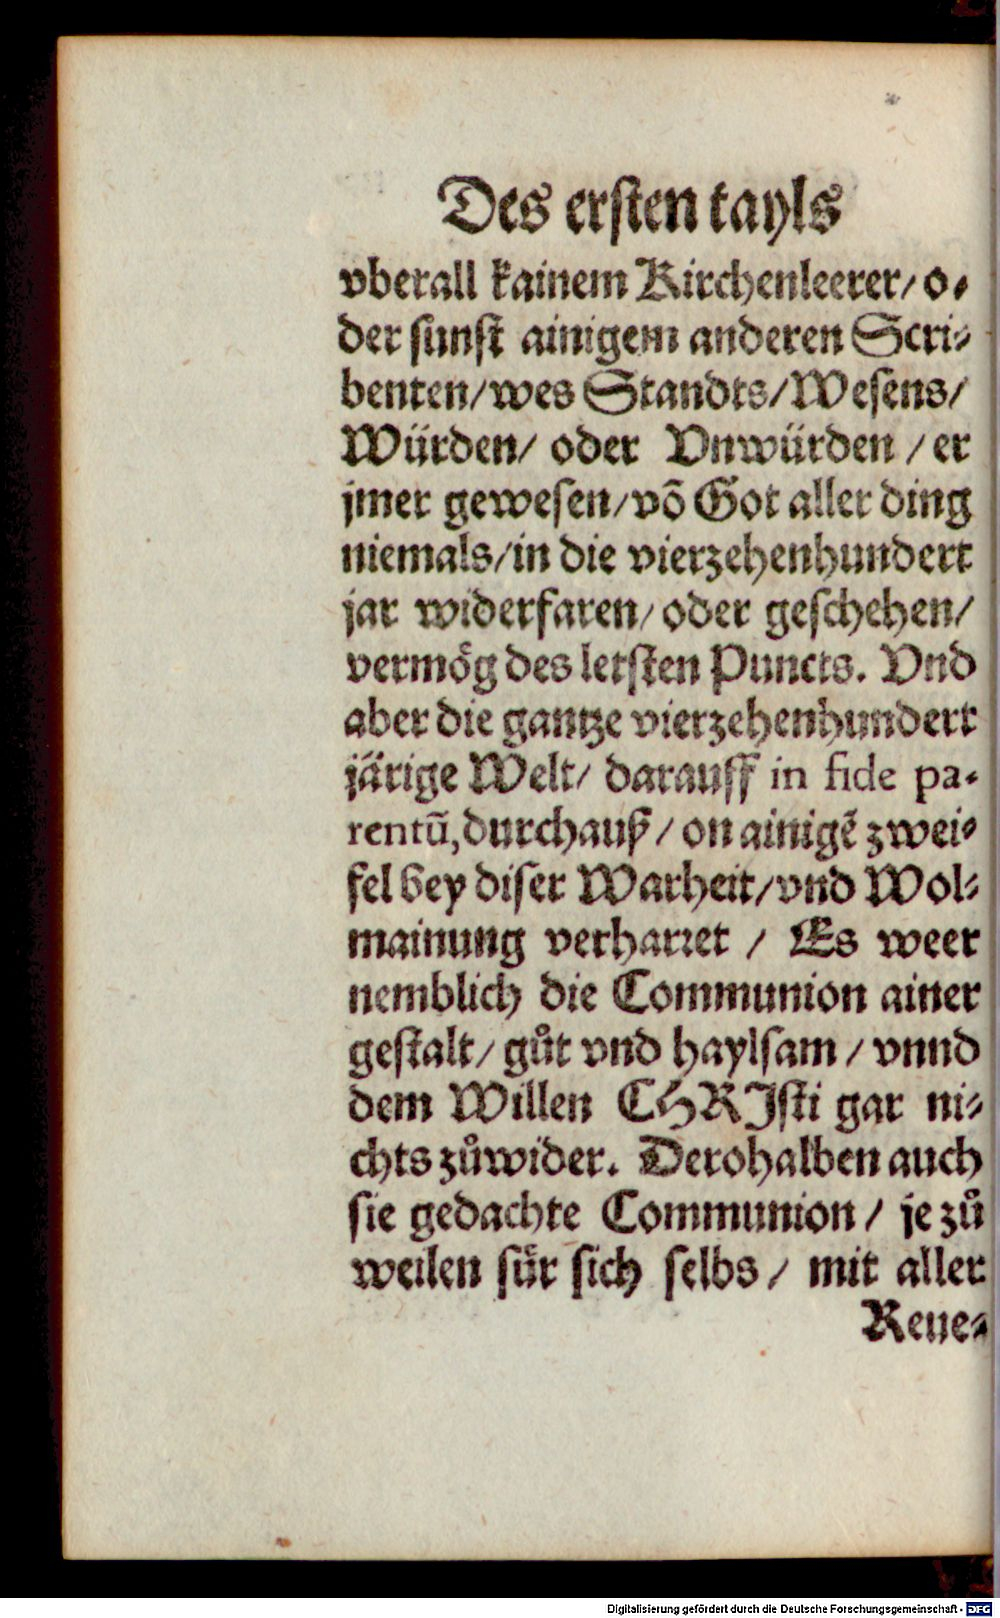 Des ersten tayls
vberall kainem Kirchenleerer/ o-
der sunst ainigem anderen Scri-
benten/ wes Standts/ Wesens/
Würden/ oder Vnwürden / er
jmer gewesen/ võ Got aller ding
niemals/ in die vierzehenhundert
jar widerfaren/ oder geschehen/
vermög des letsten Puncts. Vnd
aber die gantze vierzehenhundert
järige Welt/ darauff in fide pa-
rentũ, durchauß / on ainigẽ zwei-
fel bey diser Warheit/ vnd Wol-
mainung verharret / Es weer
nemblich die Communion ainer
gestalt/ gůt vnd haylsam / vnnd
dem Willen CHRJsti gar ni-
chts zůwider. Derohalben auch
sie gedachte Communion / je zů
weilen für sich selbs / mit aller
Reue-
Digitalisierung gefördert durch die Deutsche Forschungsgemeinschaft - DFG